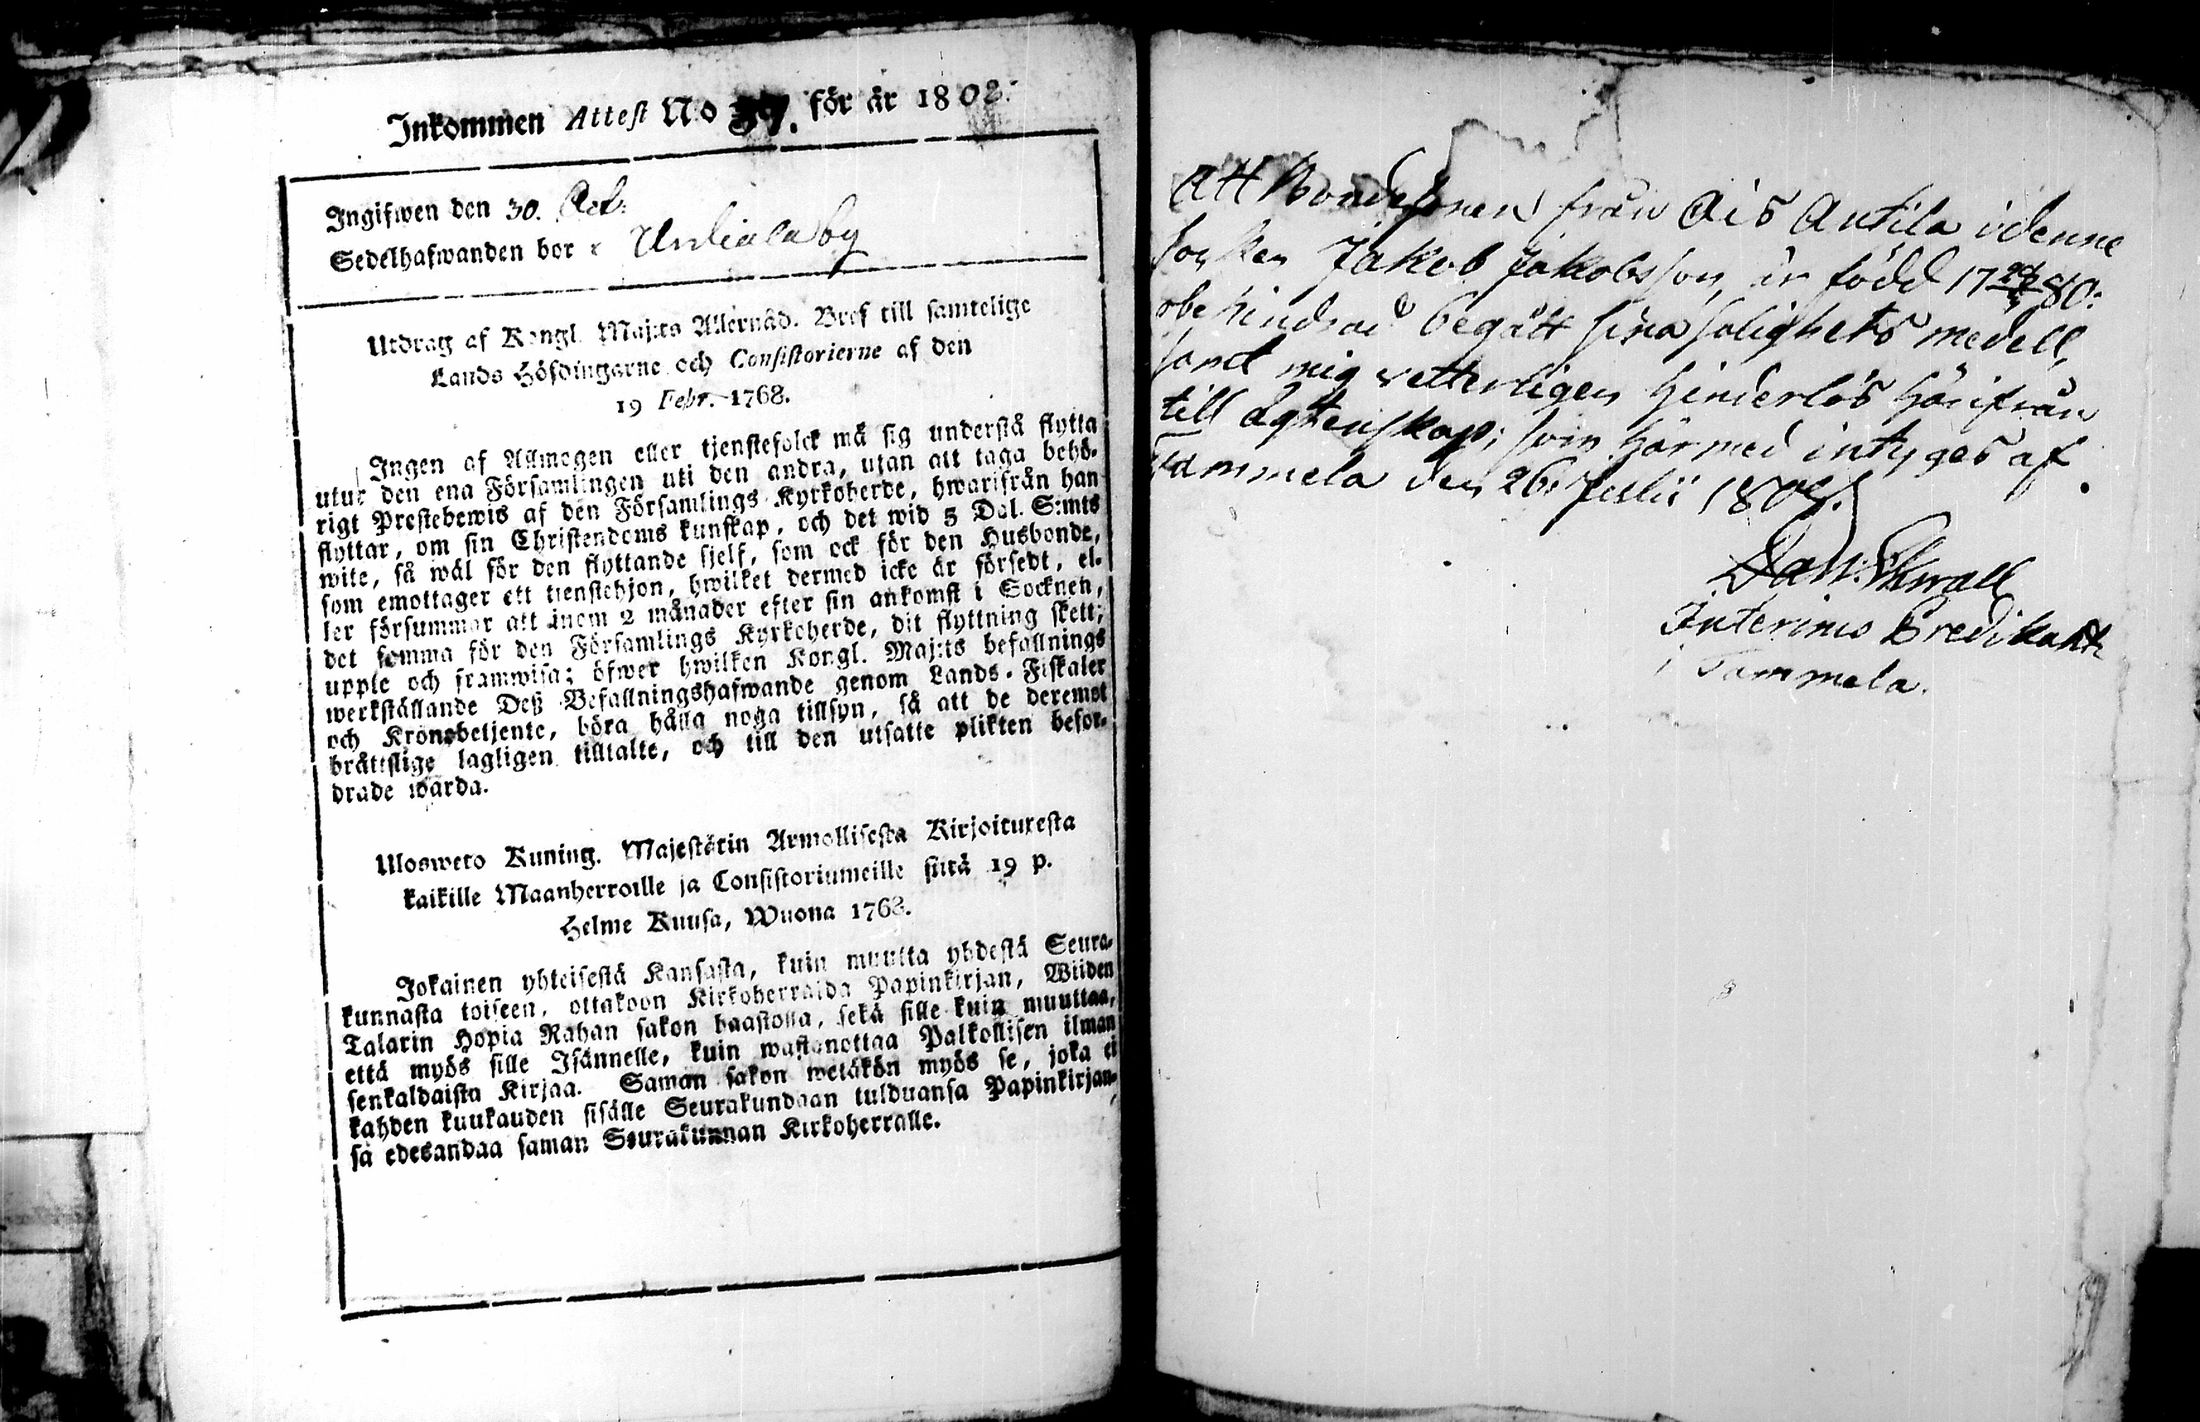 Inkommen Attest No 37. för år 1802.
Ingifwen den 30. Oct:
Sedelhafwanden bor i Urdiala by
Utdrag af Kongl. Maj:ts Allernåd. Bref till samtelige
Lands Höfdingarne och Consistorierne af den
19 Febr. 1768.
Ingen af Allmogen eller tjenstefolck må sig understå flytta
utur den ena Församlingen uti den andra, utan att taga behö-
rigt Prestebewis af den Församlings Kyrkoherde, hwarifrån han
flyttar, om sin Christendoms kunskap, och det wid 5 Dal. S:mts
wite, så wäl för den flyttande sjelf, som ock för den Husbonde,
som emottager ett tienstehjon, hwilket dermed icke är försedt, el-
ler försummar att inom 2 månader efter sin ankomst i Socknen,
det samma för den Församlings Kyrkoherde, dit flyttning skett;
upple och framwisa; öfwer hwilken Kongl. Maj:ts befallnings
werkställande Deß Befallningshafwande genom Lands-Fiskaler
och Kronobetjente, böra hålla noga tillsyn, så att de deremot
bråttslige lagligen tilltalte, och till den utsatte plikten befor-
drade warda.
Ulosweto Kuning. Majestätin Armollisesta Kirjoituxesta
kaikille Maanherroille ja Consistoriumeille siitä 19 p.
Helme Kuusa, Wuona 1768.
Jokainen yhteisestä Kansasta, kuin muutta yhdestä Seura-
kunnasta toiseen, ottakoon Kirkoherralda Papinkirjan, Wiiden
Talarin Hopia Rahan sakon haastolla, sekä sille kuin muuttaa,
että myös sille Isännelle, kuin wastanottaa Palkollisen ilman
senkaldaista Kirjaa. Saman sakon wetäkön myös se, joka ei
kahden kuukauden sisälle Seurakundaan tulduansa Papinkirjan-
sa edesandaa saman Seurakunnan Kirkoherralle.
Att Bondesonen från Ois Antila i denne
socken Jakob Jakobsson, är född 17 80:
obehindrad begått sina salighets medell,
samt mig vetterligen hinderlös härifrån
till ägtenskap; som härmed intyges af
Tammela den 26. Julii 180
Dan: Ekwall
Interims Predikant
i Tammela.